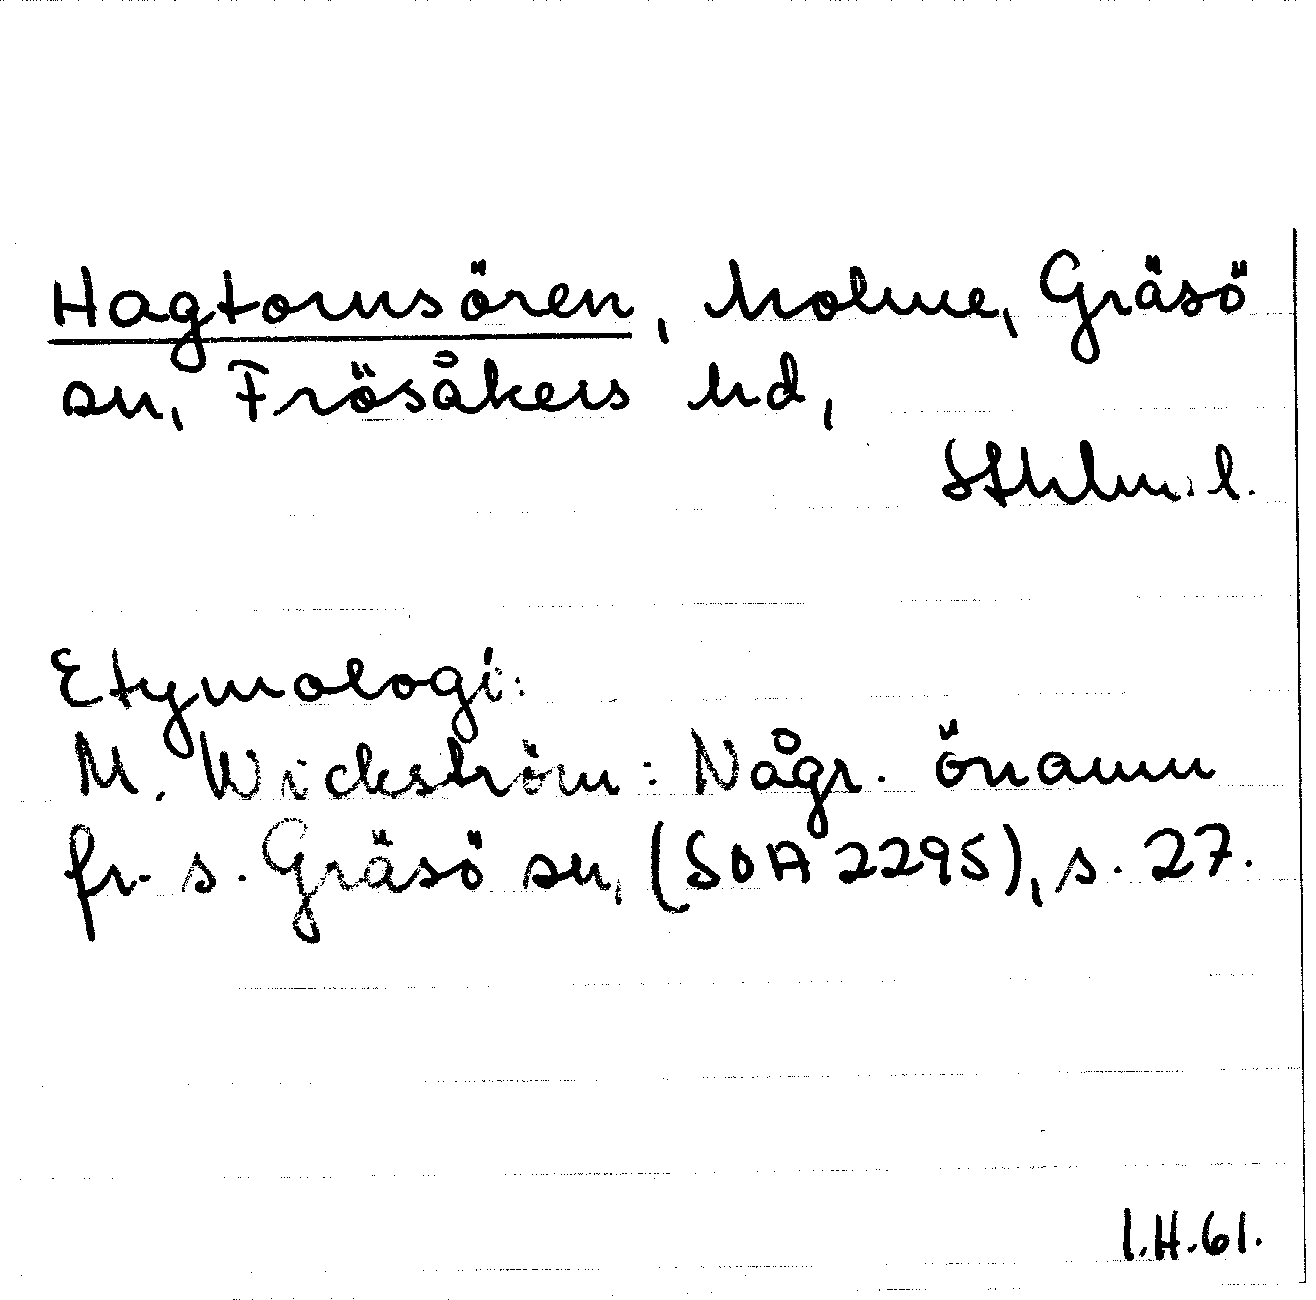 Hagtornsören, holme, Gräsö
sn, Frösåkers hd,
Sthlm. l.
Etymologi:
M. Wickström: Någr. önamn
fr. s. Gräsö sn, (SOA 2295), s. 27.
I.H.61.